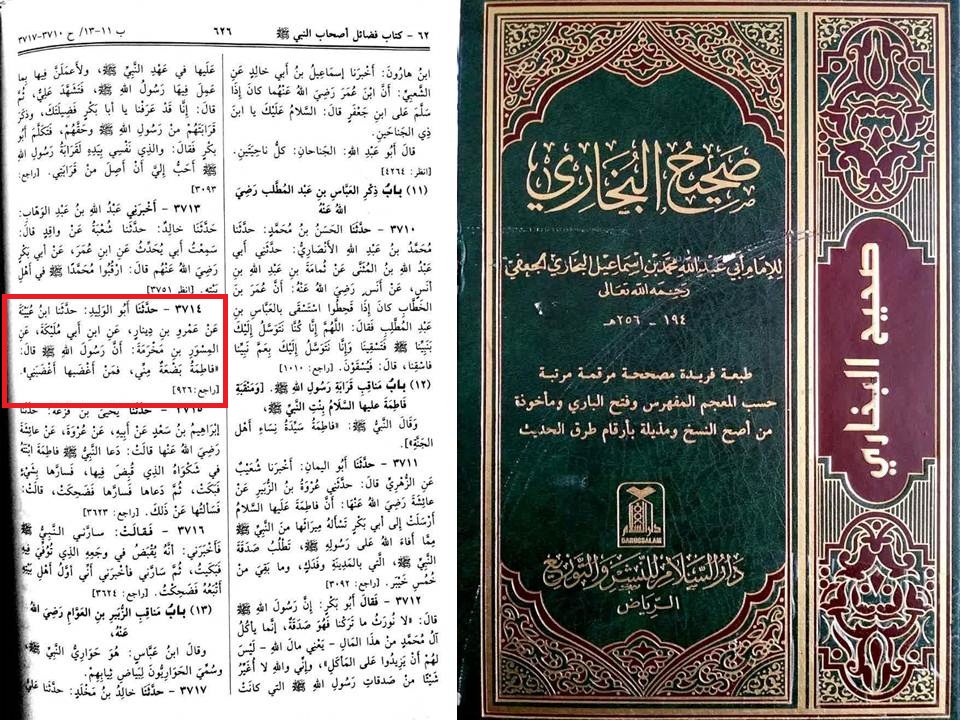 ٦٢ - كتاب فضائل أصحاب النبي ﷺ
٦٢٦
ب ١١-١٣/ ح ٣٧١٠-٣٧١٧
ابنُ هارُونَ: أَخْبَرَنا إسماعِيلُ بنُ أبي خالِدٍ عَنِ
الشَّعبِيِّ: أَنَّ ابْنَ عُمَرَ رَضِيَ اللهُ عَنْهُما كانَ إذَا
سَلَّمَ عَلى ابنِ جَعْفَرٍ قالَ: السَّلامُ عَلَيْكَ يا ابنَ
ذِي الجَناحَينِ.
قالَ أَبُو عَبْدِ اللهِ: الجَناحانِ: كلُّ ناحِيَتَينِ.
[انظر: ٤٢٦٤]
(١١) بابُ ذِكْرِ العَبَّاسِ بنِ عَبْدِ المُطَّلبِ رَضِيَ
اللهُ عَنْهُ
٣٧١٠ - حدَّثَنَا الحَسَنُ بنُ مُحَمَّدٍ: حدَّثَنَا
مُحَمَّدُ بنُ عَبْدِ اللهِ الأَنْصَارِيُّ: حدَّثَنِي أَبِي
عَبْدُ اللهِ بنُ المُثَنَّى عَنْ ثُمامَةَ بنِ عَبْدِ اللهِ بنِ
أَنَسٍ، عَنْ أَنَسٍ رَضِيَ اللهُ عَنْهُ: أَنَّ عُمَرَ بنَ
الخَطَّابِ كانَ إذَا قَحطُوا اسْتَسْقَى بالعَبَّاسِ بنِ
عَبْدِ المُطَّلِبِ فَقالَ: اللَّهُمَّ إنَّا كُنَّا نَتَوَسَّلُ إلَيْكَ
بنَبِيِّنا ﷺ فَتَسْقِينا وَإنَّا نَتَوَسَّلُ إلَيْكَ بِعَمِّ نَبِيِّنا
فاسْقِنا، قالَ: فَيُسْقَوْنَ. [راجع: ١٠١٠]
(١٢) بابُ مَناقِبِ قَرَابَةِ رَسُولِ اللهِ ﷺ. [وَمَنْقَبَةِ
فَاطِمَةَ عليها السَّلامُ بِنْتِ النَّبِيِّ ﷺ،
وَقَالَ النَّبِيُّ ﷺ: «فاطِمَةُ سَيِّدَةُ نِساءِ أَهْلِ
الجَنَّةِ»].
٣٧١١ - حدَّثَنَا أَبُو اليمانِ: أخْبَرَنا شُعَيْبٌ
عَنِ الزُّهْرِيِّ قالَ: حدَّثَنِي عُرْوَةُ بنُ الزُّبَيرِ عَنْ
عائِشَةَ رَضِيَ اللهُ عَنْهَا: أَنَّ فاطمَةَ عَلَيها السَّلامُ
أَرْسَلَتْ إلى أبي بَكْرٍ تَسْأَلُهُ مِيراثَها مِنَ النَّبيِّ ﷺ
مِمَّا أَفاءَ اللهُ عَلى رَسُولِهِ ﷺ، تَطْلُبُ صَدَقَةَ
النَّبِيِّ ﷺ، الَّتِي بالمَدِينَةِ وفَدَكٍ، وَما بَقِيَ مِنْ
خُمُسِ خَيْبَر. [راجع: ٣٠٩٢]
٣٧١٢ - فَقالَ أَبُو بَكْرٍ: إنَّ رَسُولَ اللهِ ﷺ
قالَ: «لا نُورَثُ ما تَرَكْنا فَهُوَ صَدَقَةٌ، إنَّما يأكُلُ
آلُ مُحَمَّدٍ مِنْ هذَا المَالِ - يَعْنِي مالَ اللهِ - لَيْسَ
لَهُمْ أَنْ يَزِيدُوا عَلى المَأْكَلِ»، وإنِّي وَاللهِ لا أُغَيِّرُ
شَيْئًا مِنْ صدقاتِ رَسُولِ اللهِ ﷺ التي كانَتْ
عَلَيها في عَهْدِ النَّبِيِّ ﷺ، ولأعمَلَنَّ فِيها بما
عَمِلَ فِيها رَسُولُ اللهِ ﷺ، فَتَشَهَّدَ عَلِيٌّ، ثُمَّ
قالَ: إنَّا قَدْ عَرَفْنا يا أبا بَكْرٍ فَضِيلَتَكَ، وذكَرَ
قَرَابَتَهُمْ مِنْ رَسُولِ اللهِ ﷺ وحَقَّهُمْ، فَتَكَلَّمَ أَبُو
بكْرٍ فَقالَ: والذِي نَفْسِي بِيَدِهِ لَقَرَابَةُ رَسُولِ اللهِ
ﷺ أَحَبُّ إليَّ أَنْ أَصِلَ مِنْ قَرَابَتِي. [راجع:
٣٠٩٣]
٣٧١٣ - أَخْبَرَنِي عَبْدُ اللهِ بْنُ عَبْدِ الوَهَّابِ:
حَدَّثَنَا خالِدٌ: حدَّثَنَا شُعْبَةُ عَنْ واقِدٍ قالَ:
سَمِعْتُ أبي يُحَدِّثُ عَنِ ابنِ عُمَرَ، عَنْ أبي بَكْرٍ
رَضِيَ اللهُ عَنْهُم قالَ: ارْقُبُوا مُحَمَّدًا ﷺ في أَهْلِ
بَيْتِهِ. [انظر ٣٧٥١]
٣٧١٤ - حدَّثَنَا أَبُو الوَلِيدِ: حدَّثَنا ابنُ عُيَيْنَةَ
عَنْ عَمْرِو بنِ دِينارٍ، عَنِ ابنِ أبي مُلَيْكَةَ، عَنِ
المِسْوَرِ بنِ مَخْرَمَةَ: أَنَّ رَسُولَ اللهِ ﷺ قالَ:
«فاطِمَةُ بَضْعَةٌ مِنِّي، فمَنْ أَغْضَبَها أَغْضَبَنِي».
[راجع: ٩٢٦]
٣٧١٥ - حدَّثَنَا يَحْيَى بنُ قَزَعَةَ: حدَّثَنا
إبْراهِيمُ بنُ سَعْدٍ عَنْ أَبِيهِ، عَنْ عُرْوَةَ، عَنْ عائِشَةَ
رَضِيَ اللهُ عَنْها قالَتْ: دَعا النَّبِيُّ ﷺ فاطِمَةَ ابْنَتَهُ
في شَكْوَاهُ الذِي قُبِضَ فِيها، فَسارَّها بِشَيْءٍ
فَبَكَتْ، ثُمَّ دَعاها فَسارَّها فَضَحِكَتْ، قالَتْ:
فَسَأَلتُها عَنْ ذلكَ. [راجع: ٣٦٢٣]
٣٧١٦ - فَقالَتْ: سارَّنِي النَّبِيُّ ﷺ
فَأَخْبَرَنِي: أنَّهُ يُقْبَضُ في وجَعِهِ الذِي تُوُفِّيَ فِيهِ
فَبَكَيتُ، ثُمَّ سَارَّنِي فأخْبَرَنِي أَنِّي أوَّلُ أَهْلِ بَيْتِهِ
أَتْبَعُهُ فَضَحِكْتُ. [راجع: ٣٦٢٤]
(١٣) بابُ مَناقِبِ الزُّبَيرِ بنِ العَوَّامِ رَضِيَ اللهُ
عَنْهُ،
وقالَ ابنُ عَبَّاسٍ: هُوَ حَوَارِيُّ النَّبيِّ ﷺ،
وسُمِّيَ الحَوَارِيُّونَ لِبَياضِ ثِيابِهِمْ.
٣٧١٧ - حدَّثَنَا خالِدُ بنُ مَخْلَدٍ: حدَّثَنا عَلِيُّ
صحيح البخاري
للإمام أبي عبد الله محمد بن إسماعيل البخاري الجعفي
رحمه الله تعالى
١٩٤ - ٢٥٦هـ
طبعة فريدة مصححة مرقمة مرتبة
حسب المعجم المفهرس وفتح الباري ومأخوذة
من أصح النسخ ومذيلة بأرقام طرق الحديث
دار السلام
DARUSSALAM
دار السلام للنشر والتوزيع
الرياض
صحيح البخاري